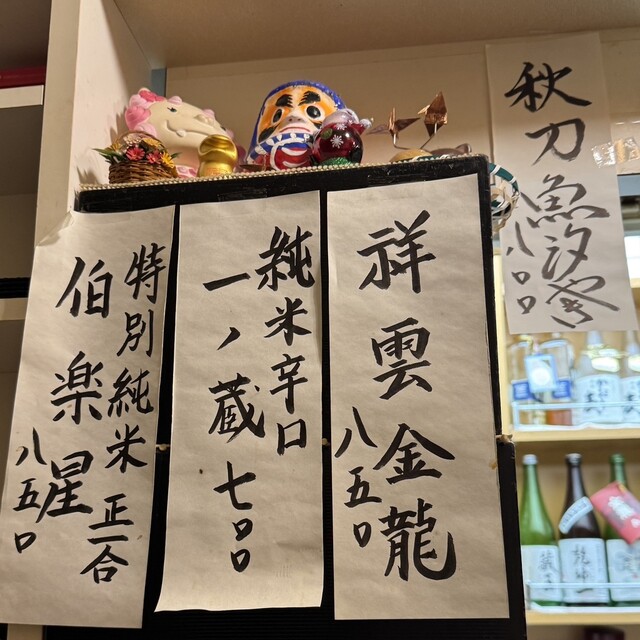 秋刀魚汐やき
八〇〇
祥雲金龍
八五〇
純米辛口
一ノ蔵 七〇〇
特別純米 正一合
伯楽星
八五〇